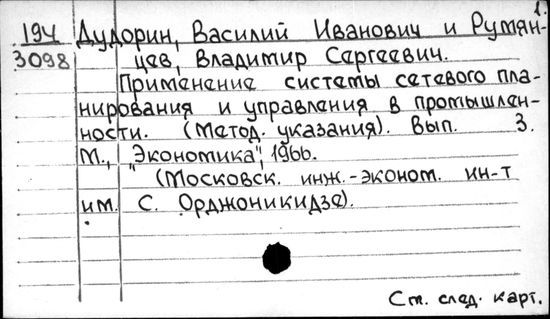 1.
194 Дудорин, Василий Иванович и Румян-
3098 цев, Владимир Сергеевич.
Применение системы сетевого пла-
нирования и управления в промышлен-
ности. (Метод. указания). Вып. 3.
М., "Экономика", 1966.
(Московск. инж.-эконом. ин-т
им. С. Орджоникидзе).
См. след. карт.